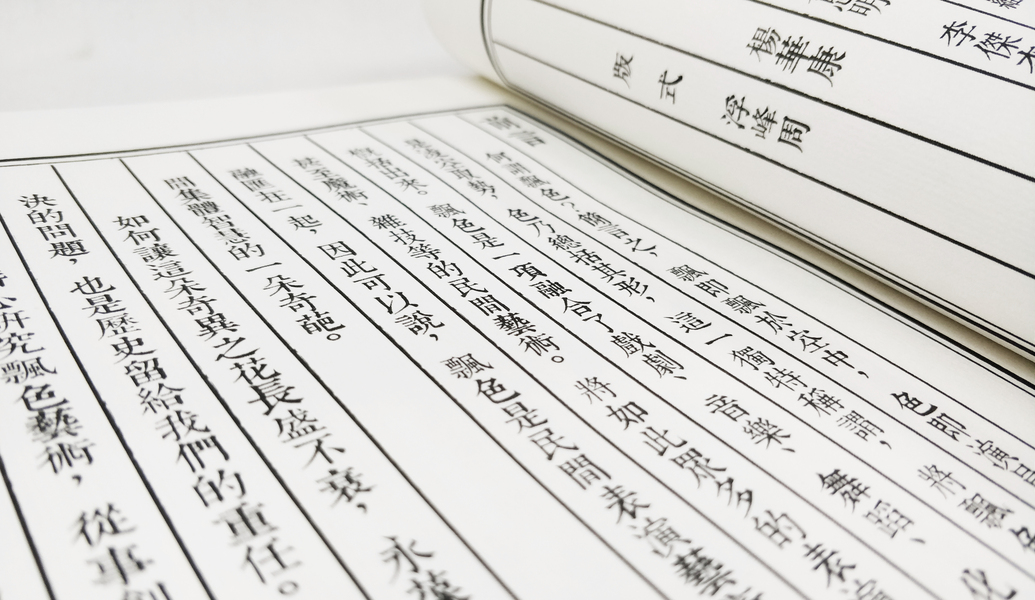 李傑
楊華康
版式 浮峰周
前言
何謂飄色?簡言之,飄即飄於空中,色即演
色乃總括其形,這一獨特稱謂,將飄色
概括出來。飄色是一項融合了戲劇、音樂、舞蹈、化
甚至魔術,雜技等的民間藝術。將如此眾多的表演
融匯在一起,因此可以說,飄色是民間表演藝
間集體智慧的一朵奇葩。
如何讓這朵奇異之花長盛不衰,永葆
決的問題,也是歷史留給我們的重任。
研究飄色藝術,從事創